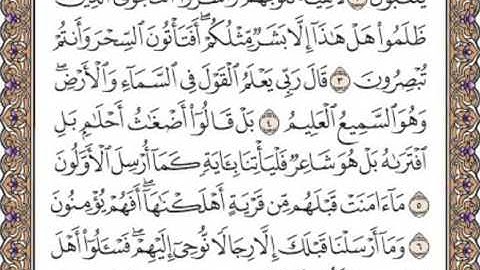 ظَلَمُوا۟ هَلْ هَٰذَآ إِلَّا بَشَرٌ مِّثْلُكُمْ ۖ أَفَتَأْتُونَ ٱلسِّحْرَ وَأَنتُمْ
تُبْصِرُونَ ٣ قَالَ رَبِّى يَعْلَمُ ٱلْقَوْلَ فِى ٱلسَّمَآءِ وَٱلْأَرْضِ ۖ
وَهُوَ ٱلسَّمِيعُ ٱلْعَلِيمُ ٤ بَلْ قَالُوٓا۟ أَضْغَٰثُ أَحْلَٰمٍۭ بَلِ
ٱفْتَرَىٰهُ بَلْ هُوَ شَاعِرٌ فَلْيَأْتِنَا بِـَٔايَةٍ كَمَآ أُرْسِلَ ٱلْأَوَّلُونَ
٥ مَآ ءَامَنَتْ قَبْلَهُم مِّن قَرْيَةٍ أَهْلَكْنَٰهَآ ۖ أَفَهُمْ يُؤْمِنُونَ
٦ وَمَآ أَرْسَلْنَا قَبْلَكَ إِلَّا رِجَالًا نُّوحِىٓ إِلَيْهِمْ ۖ فَسْـَٔلُوٓا۟ أَهْلَ